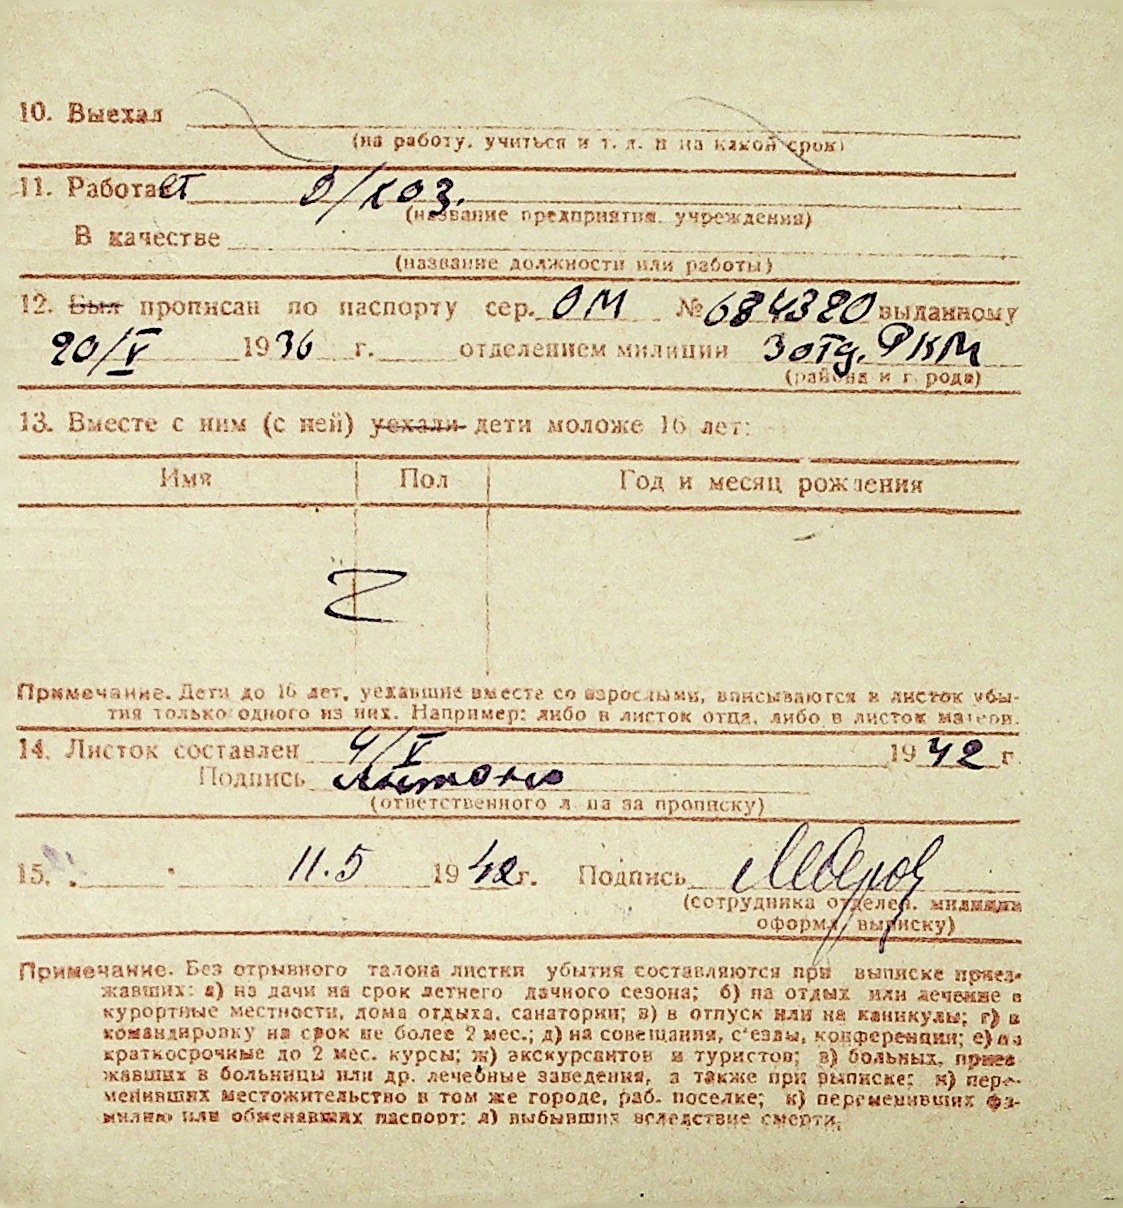 10. Выехал
(на работу, учиться и т. д. и на какой срок)
11. Работает Д/хоз.
(название предприятия, учреждения)
В качестве
(название должности или работы)
12. Был прописан по паспорту сер. ОМ № 684320 выданному
20/V 1936 г. отделением милиции 3 отд. РКМ
(района и города)
13. Вместе с ним (с ней) уехали дети моложе 16 лет:
Имя Пол Год и месяц рождения
Z
Примечание. Дети до 16 лет, уехавшие вместе со взрослыми, вписываются в листок убы-
тия только одного из них. Например: либо в листок отца, либо в листок матери.
14. Листок составлен 4/V 1942 г.
Подпись
(ответственного лица за прописку)
15. 11.5 1942 г. Подпись
(сотрудника отделен. милиции
оформ. выписку)
Примечание. Без отрывного талона листки убытия составляются при выписке приез-
жавших: а) на дачи на срок летнего дачного сезона; б) на отдых или лечение в
курортные местности, дома отдыха, санатории; в) в отпуск или на каникулы; г) в
командировку на срок не более 2 мес.; д) на совещания, с'езды, конференции; е) на
краткосрочные до 2 мес. курсы; ж) экскурсантов и туристов; з) больных, приез
жавших в больницы или др. лечебные заведения, а также при выписке: и) пере-
менивших местожительство в том же городе, раб. поселке; к) переменивших фа-
милию или обменавших паспорт; л) выбывших вследствие смерти.